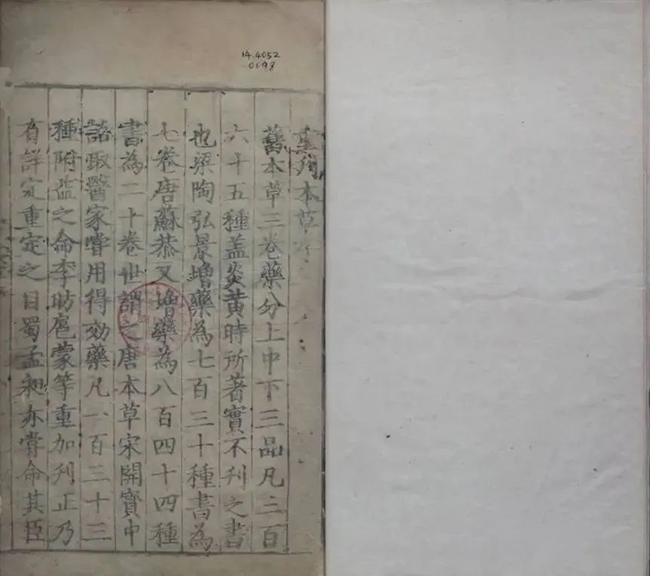 14.4052
0698
重刋本草
舊本草三卷藥分上中下三品凡三百
六十五種盖炎黄時所著實不刊之書
也梁陶弘景増藥為七百三十種書為
七卷唐蘇恭又增藥為八百四十四種
書為二十卷世謂之唐本草宋開寳中
詔取醫家嘗用得効藥凡一百三十三
種附益之命李昉扈蒙等重加刋正乃
有詳定重定之目蜀孟昶亦嘗命其臣